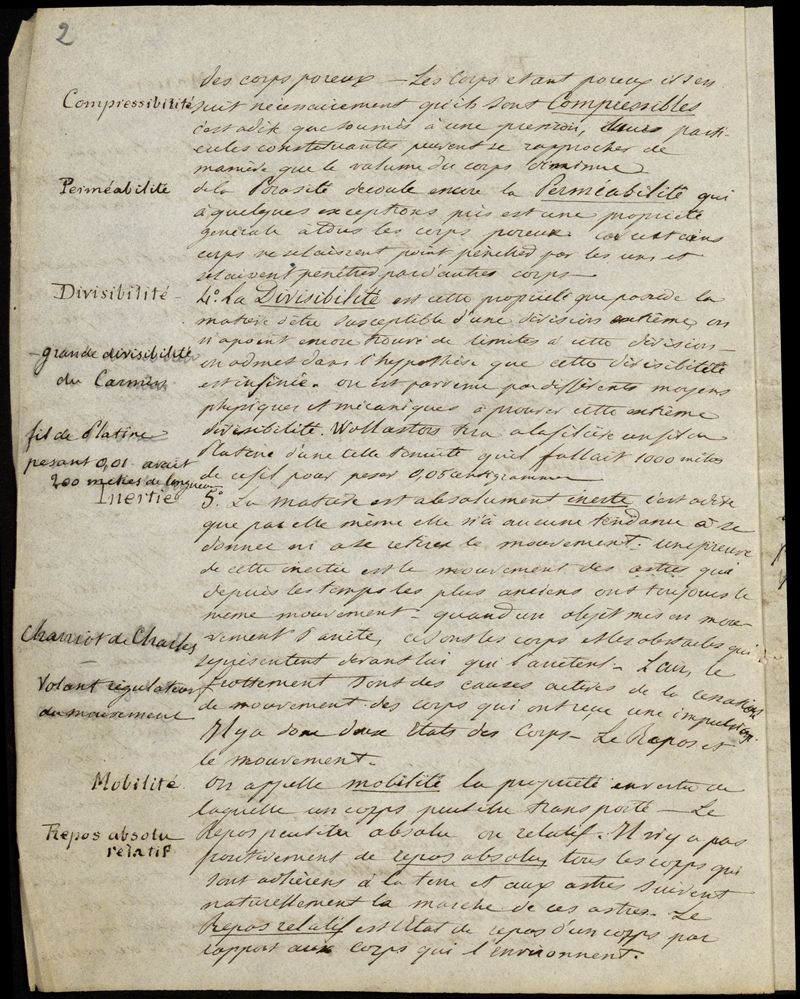 2
des corps poreux — Les Corps etant poreux il s'en
Compressibilité
suit nécessairement qu'ils sont Compressibles
c'est a dire que soumis à une pression, leurs parti-
cules constituantes peuvent se rapprocher de
manière que le volume du corps diminue
Perméabilité
de la Porosité decoule encore la Perméabilité qui
à quelques exceptions près est une propriété
générale à tous les corps poreux car certains
corps se laissent point pénétrés par les uns et
se laissent pénétrer par d'autres corps —
Divisibilité
4.º La Divisibilité est cette propriété que possède la
matière d'être susceptible d'une division extrême, on
n'a point encore trouvé de limites à cette division —
- grande divisibilité
du Carmin
on admet dans l'hypothèse que cette divisibilité
est infinie. on est parvenu par différents moyens
physiques et mécaniques à prouver cette extrême
fil de Platine
pesant 0,01 avait
200 metres de longueur
divisibilité. Wollaston tira a la filière un fil de
Platine d'une telle tenuité qu'il fallait 1000 mètres
de ce fil pour peser 0,05 centigrammes
Inertie
5.º La matière est absolument inerte c'est a dire
que par elle même elle n'a aucune tendance à se
donner ni a se retirer le mouvement. une preuve
de cette inertie est le mouvement des astres qui
depuis les temps les plus anciens ont toujours le
même mouvement - quand un objet mis en mou-
Charriot de Charles
vement s'arrète, ce sont les corps et les obstacles qui
se présentent devant lui qui l'arretent - L'air, le
Volant régulateur
du mouvement
frottement sont des causes actives de la cessation
de mouvement des corps qui ont reçu une impulsion.
Il y a donc deux Etats des Corps - Le Repos et
le mouvement.
Mobilité
On appelle mobilité la propriété en vertu de
laquelle un corps peut être transporté — Le
Repos absolu
relatif
Repos peut être absolu ou relatif. Il n'y a pas
positivement de repos absolu, tous les corps qui
sont adhérens à la terre et aux astres suivent
naturellement la marche de ces astres. Le
Repos relatif est l'Etat de repos d'un corps par
rapport aux corps qui l'environnent.